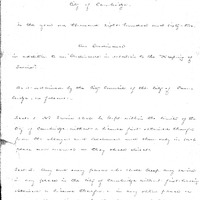 City of Cambridge.
In the year one thousand eight hundred and sixty-
An Ordinance
in addition to an Ordinance in relation to the "Keeping of
Swine"
Be it ordained by the City Council of the City of Cam-
bridge, as follows:
Sect. 1. No Swine shall be kept within the limits of the
City of Cambridge, without a license first obtained therefor
from the Mayor and Aldermen and then only in such
places and manner as they shall direct.
Sect. 2. Any and every person who shall keep any swine
in any place in the City of Cambridge without first having
obtained a license therefor, or in any other place or